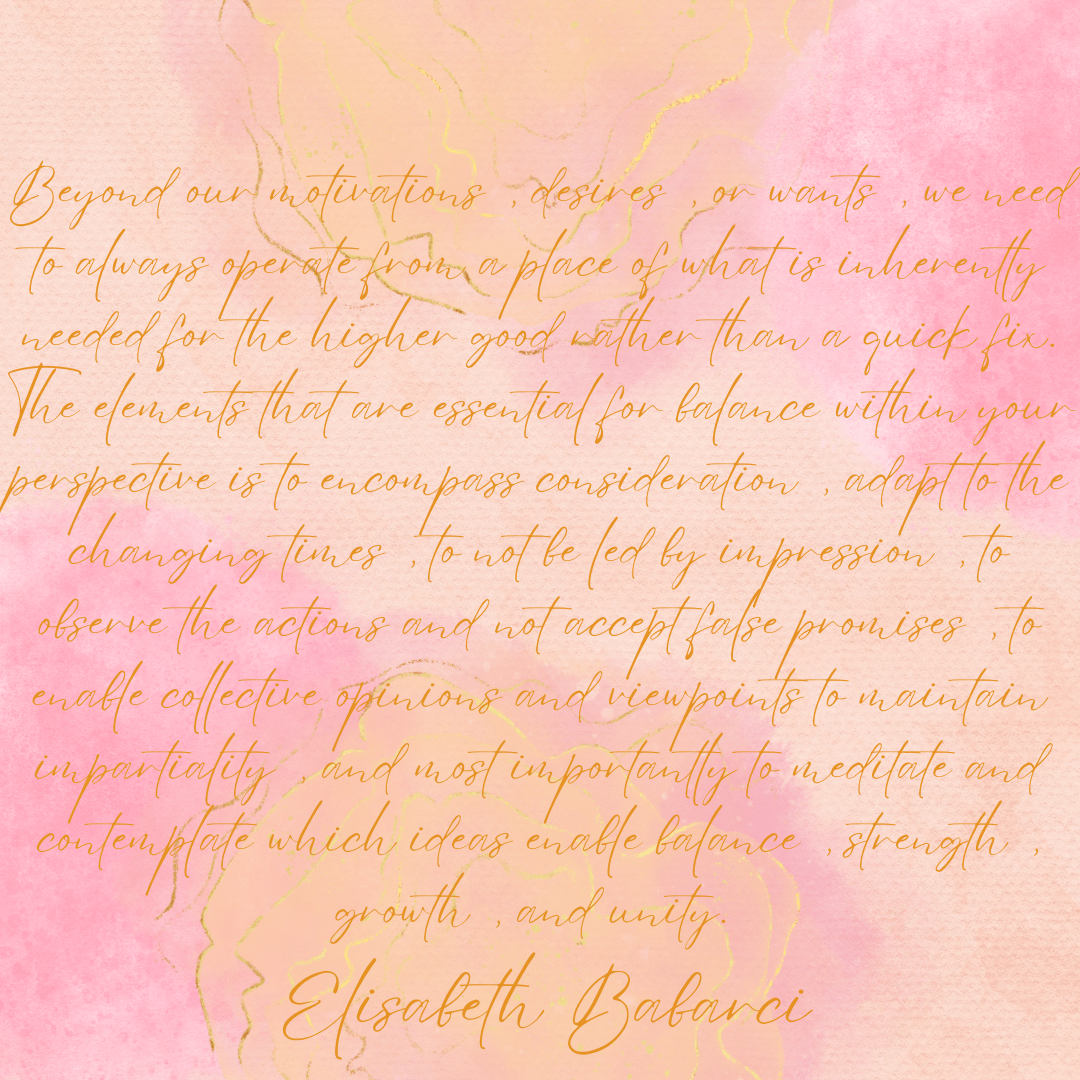 Beyond our motivations , desires , or wants , we need
to always operate from a place of what is inherently
needed for the higher good rather than a quick fix.
The elements that are essential for balance within your
perspective is to encompass consideration , adapt to the
changing times , to not be led by impression , to
observe the actions and not accept false promises , to
enable collective opinions and viewpoints to maintain
impartiality , and most importantly to meditate and
contemplate which ideas enable balance , strength ,
growth , and unity.
Elisabeth Babarci